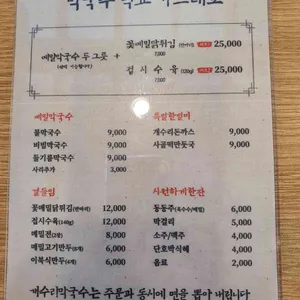 메밀막국수 두 그릇 +
꽃메밀닭튀김 (반마리) 25,000
접시수육 (120g) 25,000
메밀막국수
물막국수 9,000
비빔막국수 9,000
들기름막국수 9,000
사리추가 3,000
특별한별미
개수리돈까스 9,000
사골떡만둣국 9,000
곁들임
꽃메밀닭튀김(반마리) 12,000
접시수육(140g) 12,000
메밀전(2장) 8,000
메밀고기만두(6개) 6,000
이북식만두(4개) 6,000
시원하게한잔
동동주(옥수수/메밀) 6,000
막걸리 5,000
소주/맥주 4,000
단호박식혜 4,000
음료 2,000
개수리막국수는 주문과 동시에 면을 뽑아 버린다